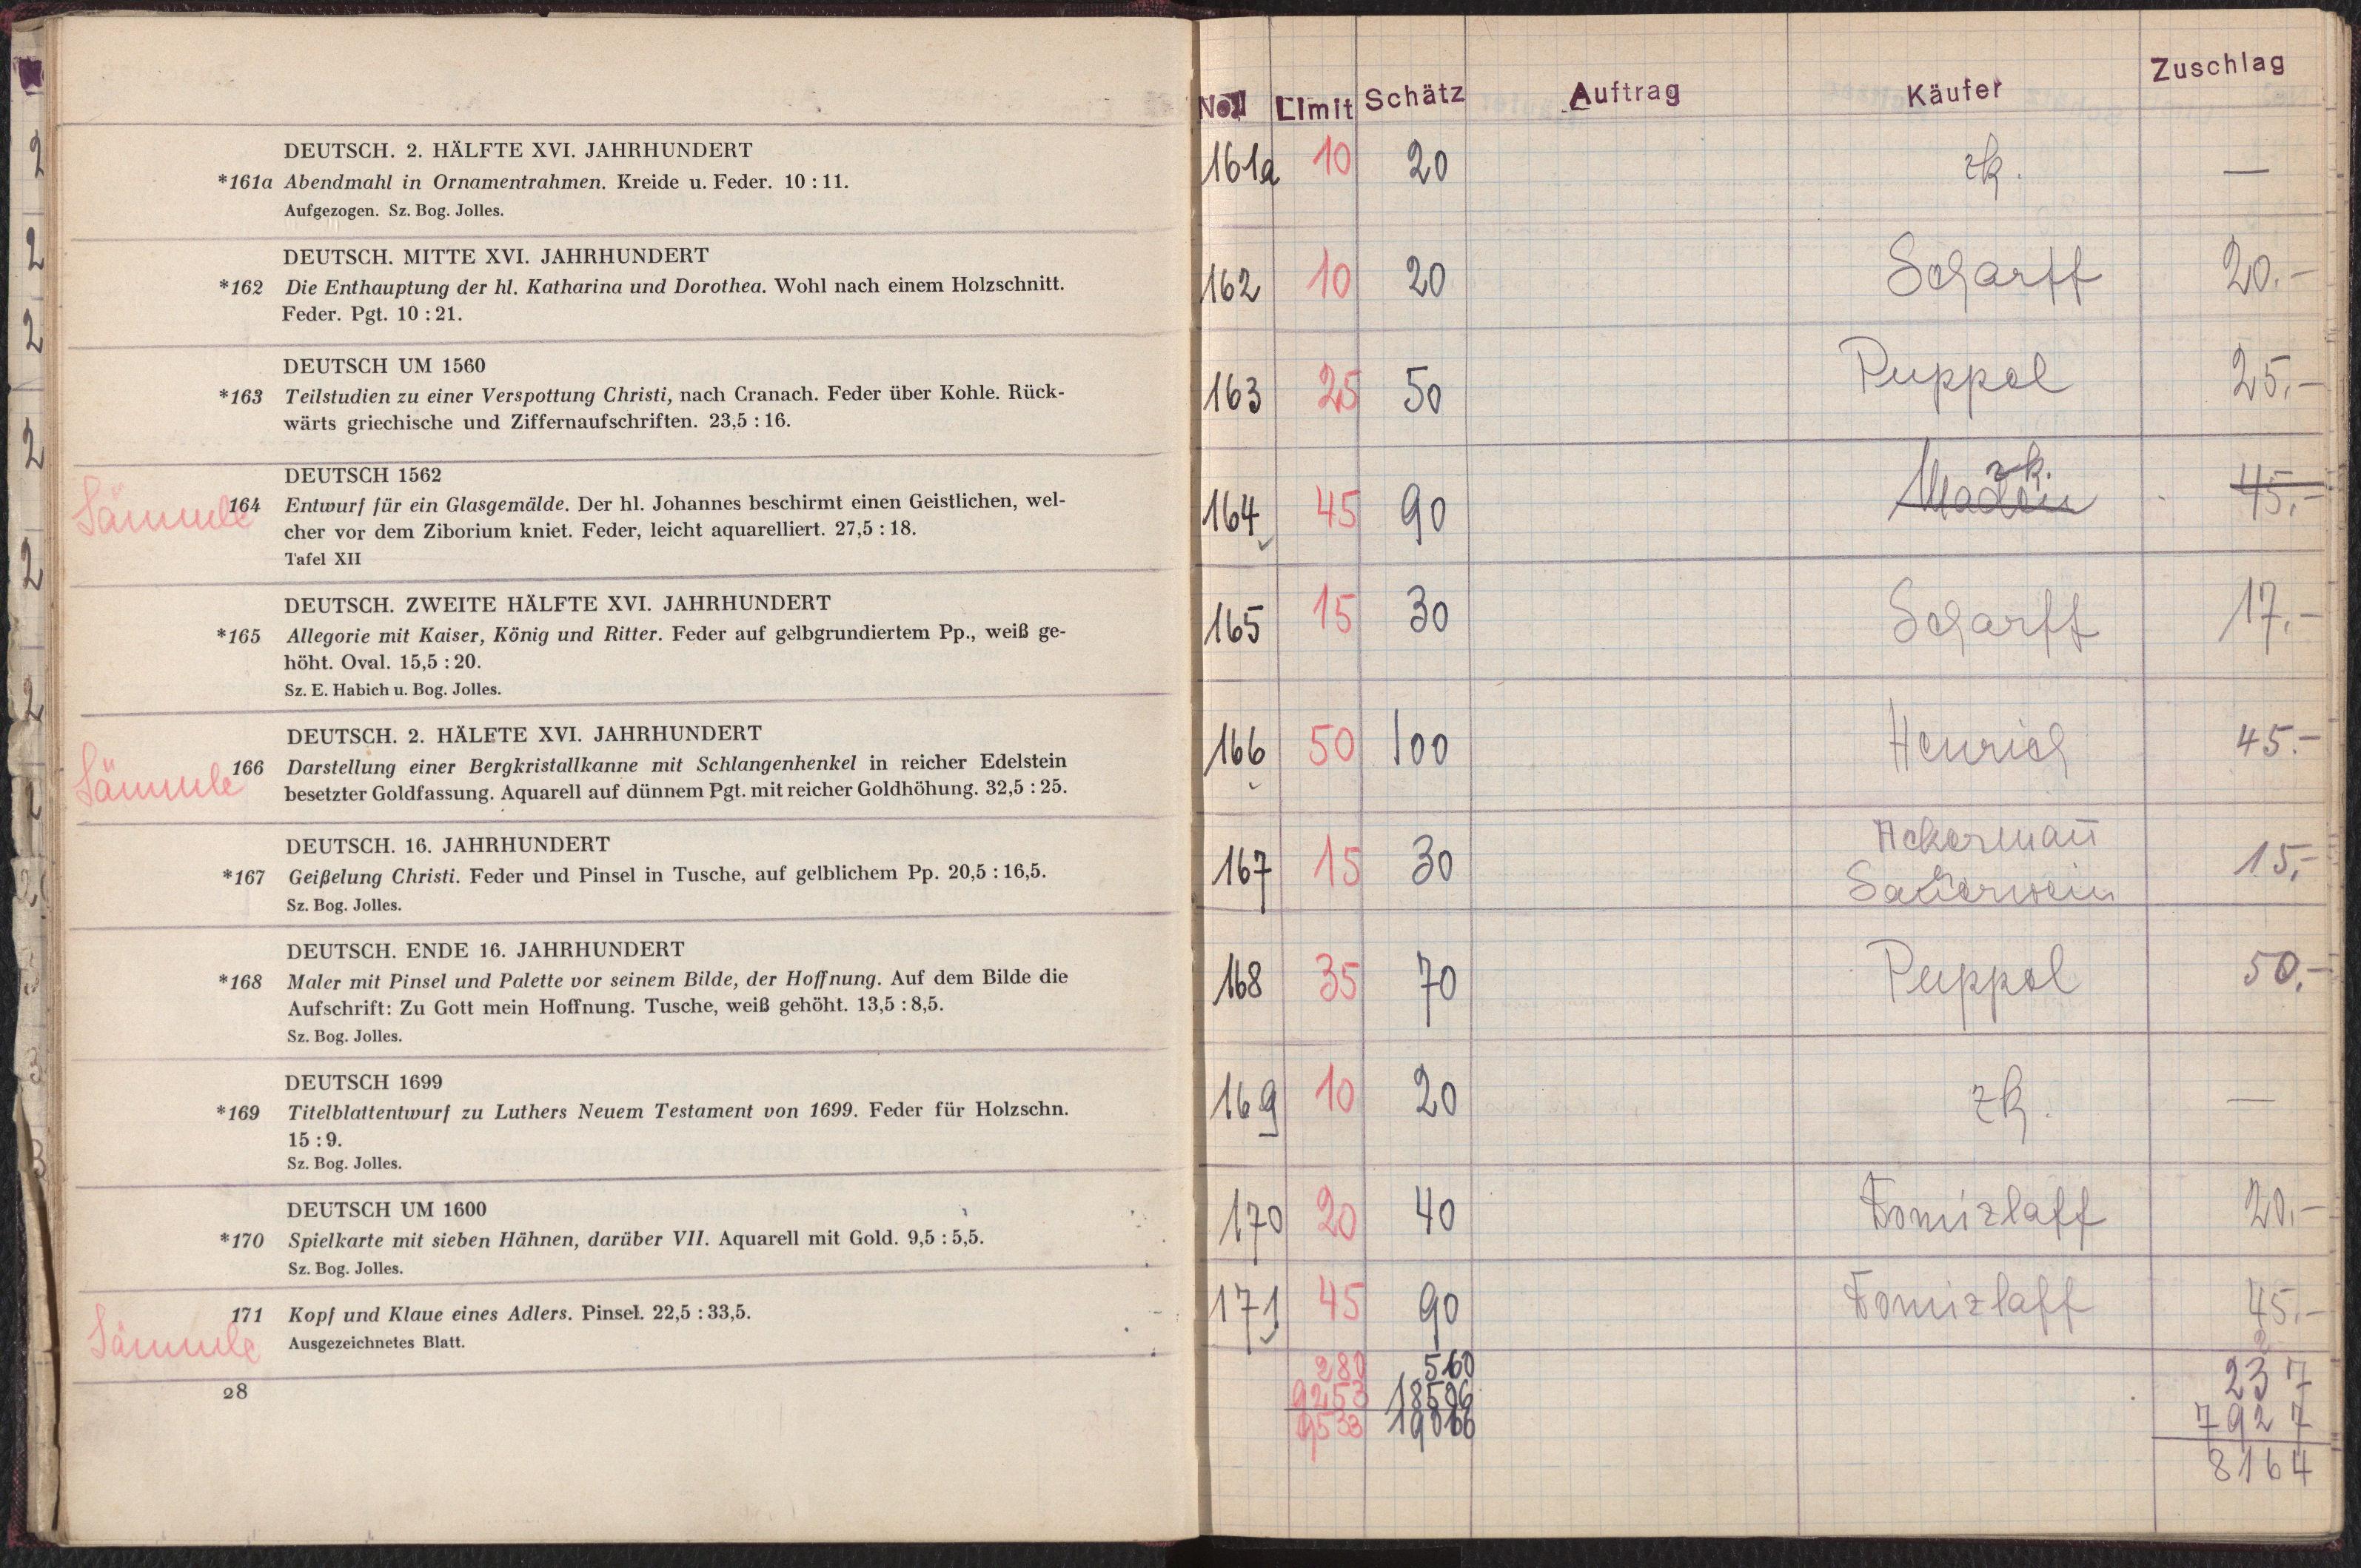 DEUTSCH. 2. HÄLFTE XVI. JAHRHUNDERT
*161a Abendmahl in Ornamentrahmen. Kreide u. Feder. 10 : 11.
Aufgezogen. Sz. Bog. Jolles.
DEUTSCH. MITTE XVI. JAHRHUNDERT
*162 Die Enthauptung der hl. Katharina und Dorothea. Wohl nach einem Holzschnitt.
Feder. Pgt. 10 : 21.
DEUTSCH UM 1560
*163 Teilstudien zu einer Verspottung Christi, nach Cranach. Feder über Kohle. Rück-
wärts griechische und Ziffernaufschriften. 23,5 : 16.
DEUTSCH 1562
Sämmle 164 Entwurf für ein Glasgemälde. Der hl. Johannes beschirmt einen Geistlichen, wel-
cher vor dem Ziborium kniet. Feder, leicht aquarelliert. 27,5 : 18.
Tafel XII
DEUTSCH. ZWEITE HÄLFTE XVI. JAHRHUNDERT
*165 Allegorie mit Kaiser, König und Ritter. Feder auf gelbgrundiertem Pp., weiß ge-
höht. Oval. 15,5 : 20.
Sz. E. Habich u. Bog. Jolles.
DEUTSCH. 2. HÄLFTE XVI. JAHRHUNDERT
Sämmle 166 Darstellung einer Bergkristallkanne mit Schlangenhenkel in reicher Edelstein
besetzter Goldfassung. Aquarell auf dünnem Pgt. mit reicher Goldhöhung. 32,5 : 25.
DEUTSCH. 16. JAHRHUNDERT
*167 Geißelung Christi. Feder und Pinsel in Tusche, auf gelblichem Pp. 20,5 : 16,5.
Sz. Bog. Jolles.
DEUTSCH. ENDE 16. JAHRHUNDERT
*168 Maler mit Pinsel und Palette vor seinem Bilde, der Hoffnung. Auf dem Bilde die
Aufschrift: Zu Gott mein Hoffnung. Tusche, weiß gehöht. 13,5 : 8,5.
Sz. Bog. Jolles.
DEUTSCH 1699
*169 Titelblattentwurf zu Luthers Neuem Testament von 1699. Feder für Holzschn.
15 : 9.
Sz. Bog. Jolles.
DEUTSCH UM 1600
*170 Spielkarte mit sieben Hähnen, darüber VII. Aquarell mit Gold. 9,5 : 5,5.
Sz. Bog. Jolles.
171 Kopf und Klaue eines Adlers. Pinsel. 22,5 : 33,5.
Sämmle Ausgezeichnetes Blatt.
28
No. Limit Schätz Auftrag Käufer Zuschlag
161a 10 20 zk. —
162 10 20 Scharff 20.-
163 25 50 Puppel 25.-
zk.
164 45 90 45.-
165 15 30 Scharff 17.-
166 50 100 Henrich 45.-
Ackermañ
167 15 30 15.-
Sauerwein
168 35 70 Puppel 50.-
169 10 20 zk. —
170 20 40 Domizlaff 20.-
171 45 90 Domizlaff 45.-
280 560 237
9253 18506 7927
9533 19066 8164